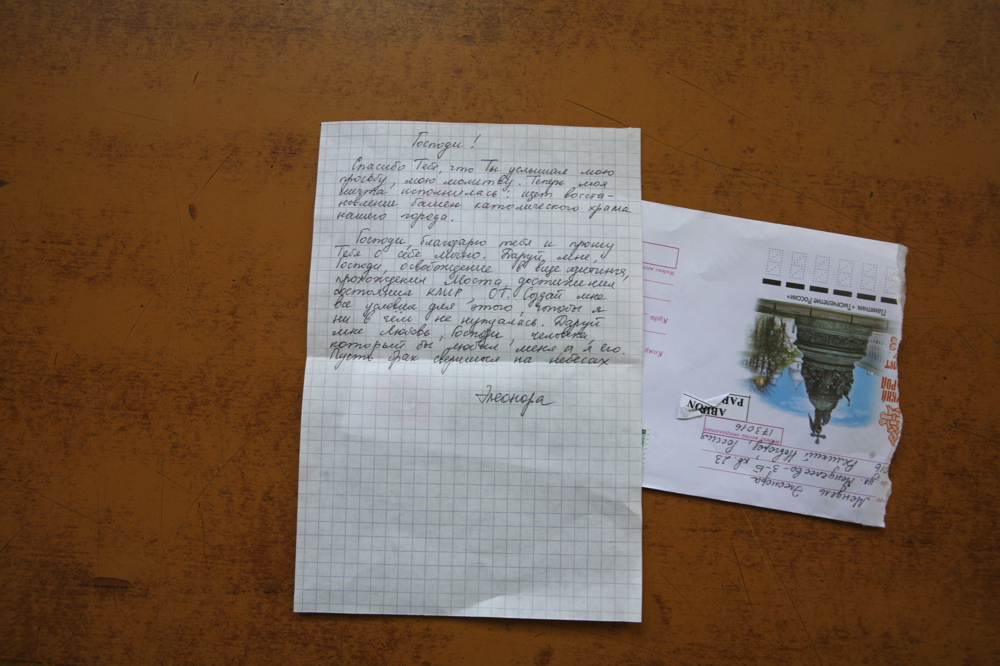 Господи!
Спасибо Тебе, что Ты услышал мою
просьбу, мою молитву. Теперь моя
мечта исполнилась: идет восста-
новление башен католического храма
нашего города.
Господи, благодарю тебя и прошу
Тебя о себе лично. Даруй мне,
Господи, освобождение в виде
прохождения Моста достижения
состояния КЛИР, ОТ. Создай мне
все условия для этого, чтобы я
ни в чем не нуждалась. Даруй
мне Любовь, Господи, человека
который бы любил меня а я его.
Пусть брак свершится на небесах
Элеонора
Памятник "Тысячелетие России"
ABIRON
PAR
173016
Великий Новгород, Россия
кв. 23
Элеонора
Куда
Кому